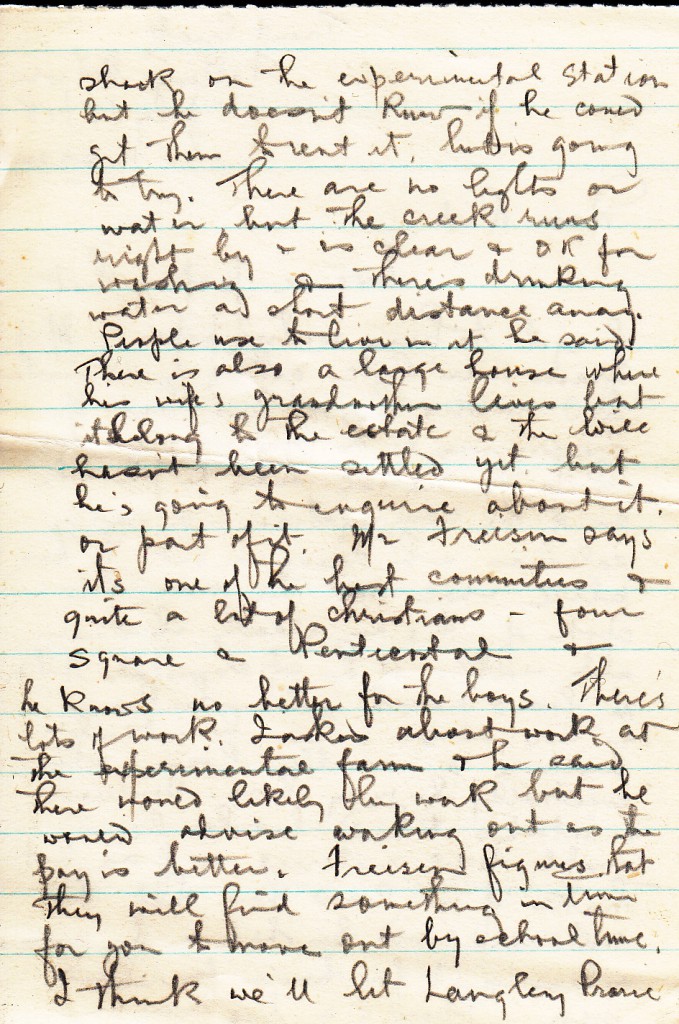 shack on the experimental station
but he doesn't know if he could
get them to rent it, but is going
to try. There are no lights or
water, but the creek runs
right by & is clear & OK for
washing & there's drinking
water a short distance away.
People use to live in it he said.
There is also a large house where
his wife's grandmother lives but
it belong to the estate & the will
hasn't been settled yet but
he's going to enquire about it.
or part of it. Mr Freisen says
it's one of the best communities &
quite a lot of christians - four
square & Pentecostal &
he knows no better for the boys. There's
lots of work. I asked about work at
the experimental farm & he said
there would likely be work but he
would advise working out as the
pay is better. Freisen figures that
they will find something in time
for you to move out by school time.
I think we'll let Langley Prairie